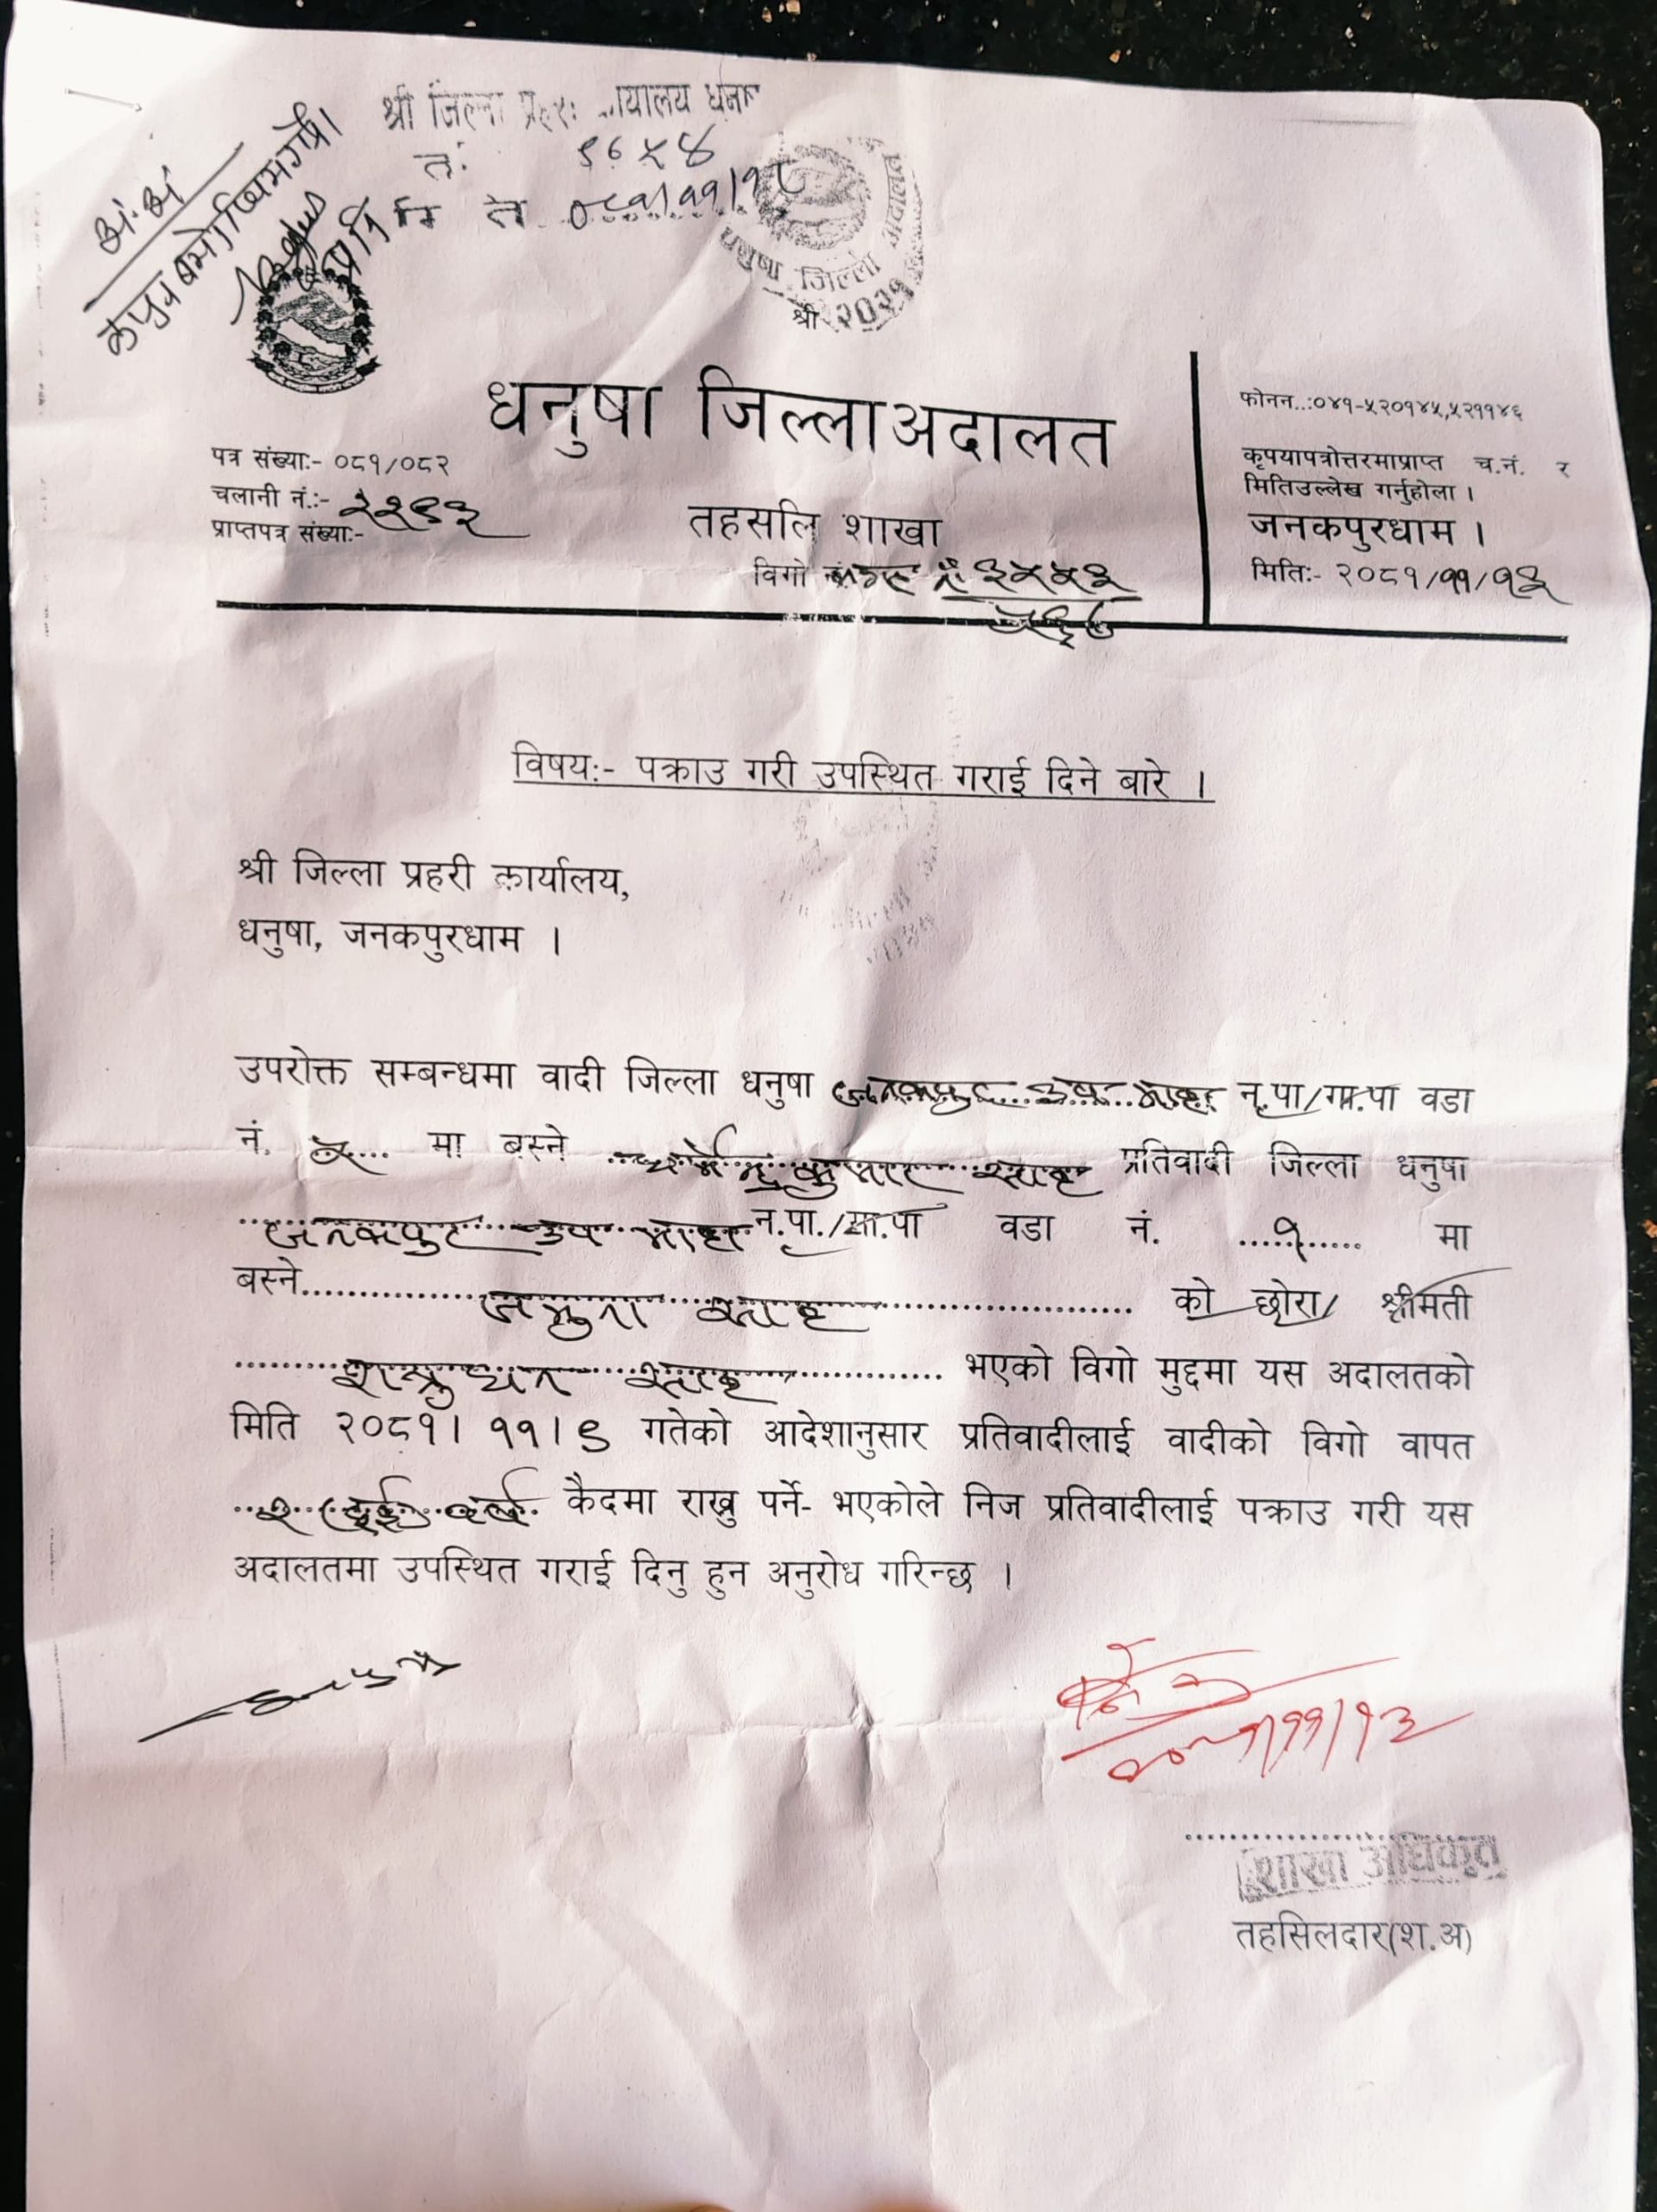 श्री जिल्ला प्रहरी कार्यालय धनुषा
धनुषा जिल्ला अदालत
श्री २०२१
धनुषा जिल्लाअदालत
फोनन..:०४१-५२०१४५,५२११४६
पत्र संख्या:- ०८१/०८२
कृपयापत्रोत्तरमाप्राप्त च.नं. र
चलानी नं.:-
मितिउल्लेख गर्नुहोला ।
प्राप्तपत्र संख्या:-
तहसलि शाखा
जनकपुरधाम ।
विगो
मिति:- २०८१/११/१३
विषय:- पक्राउ गरी उपस्थित गराई दिने बारे ।
श्री जिल्ला प्रहरी कार्यालय,
धनुषा, जनकपुरधाम ।
उपरोक्त सम्बन्धमा वादी जिल्ला धनुषा जनकपुर उप महा न.पा/गा.पा वडा
नं. ५ मा बस्ने कुमार साह प्रतिवादी जिल्ला धनुषा
जनकपुर उप महा न.पा./गा.पा वडा नं. १ मा
बस्ने साह को छोरा/ श्रीमती
शत्रुधन साह भएको विगो मुद्दमा यस अदालतको
मिति २०८१। ११।९ गतेको आदेशानुसार प्रतिवादीलाई वादीको विगो वापत
२ (दुई) कैदमा राख्नु पर्ने- भएकोले निज प्रतिवादीलाई पक्राउ गरी यस
अदालतमा उपस्थित गराई दिनु हुन अनुरोध गरिन्छ ।
२०८१/११/१३
शाखा अधिकृत
तहसिलदार(श.अ)